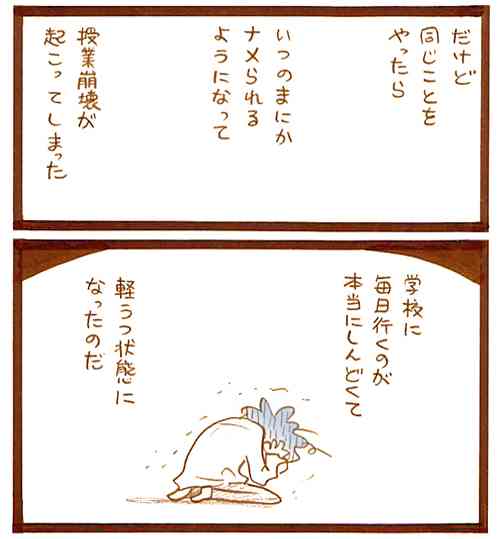 だけど
同じことを
やったら
いつのまにか
ナメられる
ようになって
授業崩壊が
起こってしまった
学校に
毎日行くのが
本当にしんどくて
軽うつ状態に
なったのだ